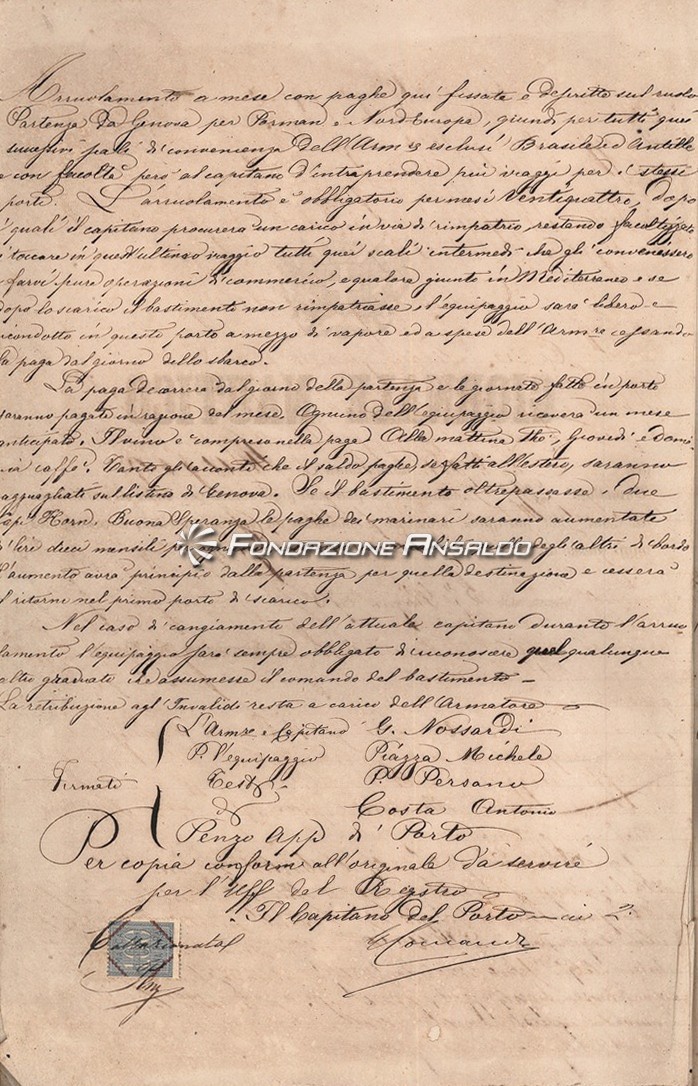 Arruolamento a mese con paghe quì fissate e descritte sul ruolo
Partenza Da Genova per Penman e Nord Europa, quindi per tutti quei
successivi scali di convenienza dell'Arm.e esclusi Brasile ed Antille
e con facoltà però al capitano d'intraprendere più viaggi per i stessi
porti. L'arruolamento è obbligatorio per mesi Ventiquattro, dopo
i quali il capitano procurerà un carico in via di rimpatrio, restando facoltizzato
di toccare in quest'ultimo viaggio tutti quei scali intermedi che gli convenissero
e farvi pure operazioni di commercio, e qualora giunto in Mediterraneo e se
dopo lo scarico il bastimento non rimpatriasse, l'equipaggio sarà libero e
ricondotto in questo porto a mezzo di vapore ed a spese dell'Arm.re cessando
la paga dal giorno dello sbarco.
La paga decorrerà dal giorno della partenza e le giornate fatte in porto
saranno pagate in ragione del mese. Ognuno dell'equipaggio riceverà un mese
anticipato. Il vino è compreso nella paga Alla mattina Thè, Giovedì e dome
nica caffè. Tanto gli acconti che il saldo paghe, se fatti all'estero, saranno
ragguagliati sul listino di Genova. Se il bastimento oltrepassasse i due
Capi Horn e Buona Speranza le paghe dei marinari saranno aumentate
di lire dieci mensili degli altri di bordo
L'aumento avrà principio dalla partenza per quella destinazione e cesserà
al ritorno nel primo porto di scarico.
Nel caso di cangiamento dell'attuale capitano durante l'arruo
lamento l'equipaggio sarà sempre obbligato di riconoscere qualunque
altro graduato che assumesse il comando del bastimento
La retribuzione agl'Invalidi resta a carico dell'Armatore
L'Arm.re e Capitano G. Nossardi
P. l'equipaggio Piazza Michele
Firmati Test. P. Persano
d.o Costa Antonio
Penzo App. di Porto
Per copia conforme all'originale da servire
per l'Uff. del Registro
Il Capitano del Porto
FONDAZIONE ANSALDO